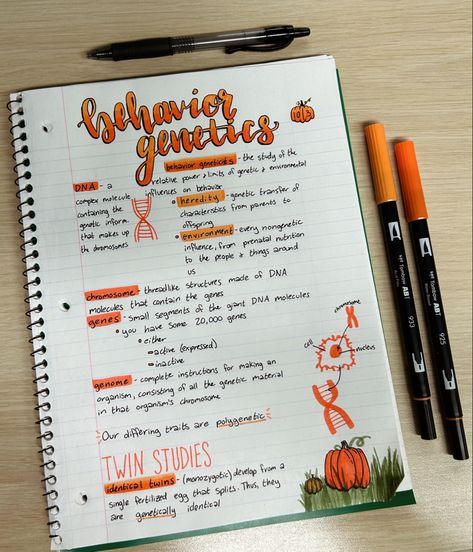 behavior
genetics
behavior geneticists - the study of the
relative power & limits of genetic & environmental
influences on behavior
DNA - a
complex molecule
containing the
genetic inform.
that makes up
the chromosomes
heredity - genetic transfer of
characteristics from parents to
offspring
environment - every nongenetic
influence, from prenatal nutrition
to the people & things around
us
chromosome - threadlike structures made of DNA
molecules that contain the genes
genes - small segments of the giant DNA molecules
you have some 20,000 genes
either
active (expressed)
inactive
genome - complete instructions for making an
organism, consisting of all the genetic material
in that organism's chromosome
chromosome
cell
nucleus
Our differing traits are polygenetic
TWIN STUDIES
identical twins - (monozygotic) develop from a
single fertilized egg that splits. Thus, they
are genetically identical
Tombow ABT
933
Tombow ABT
925